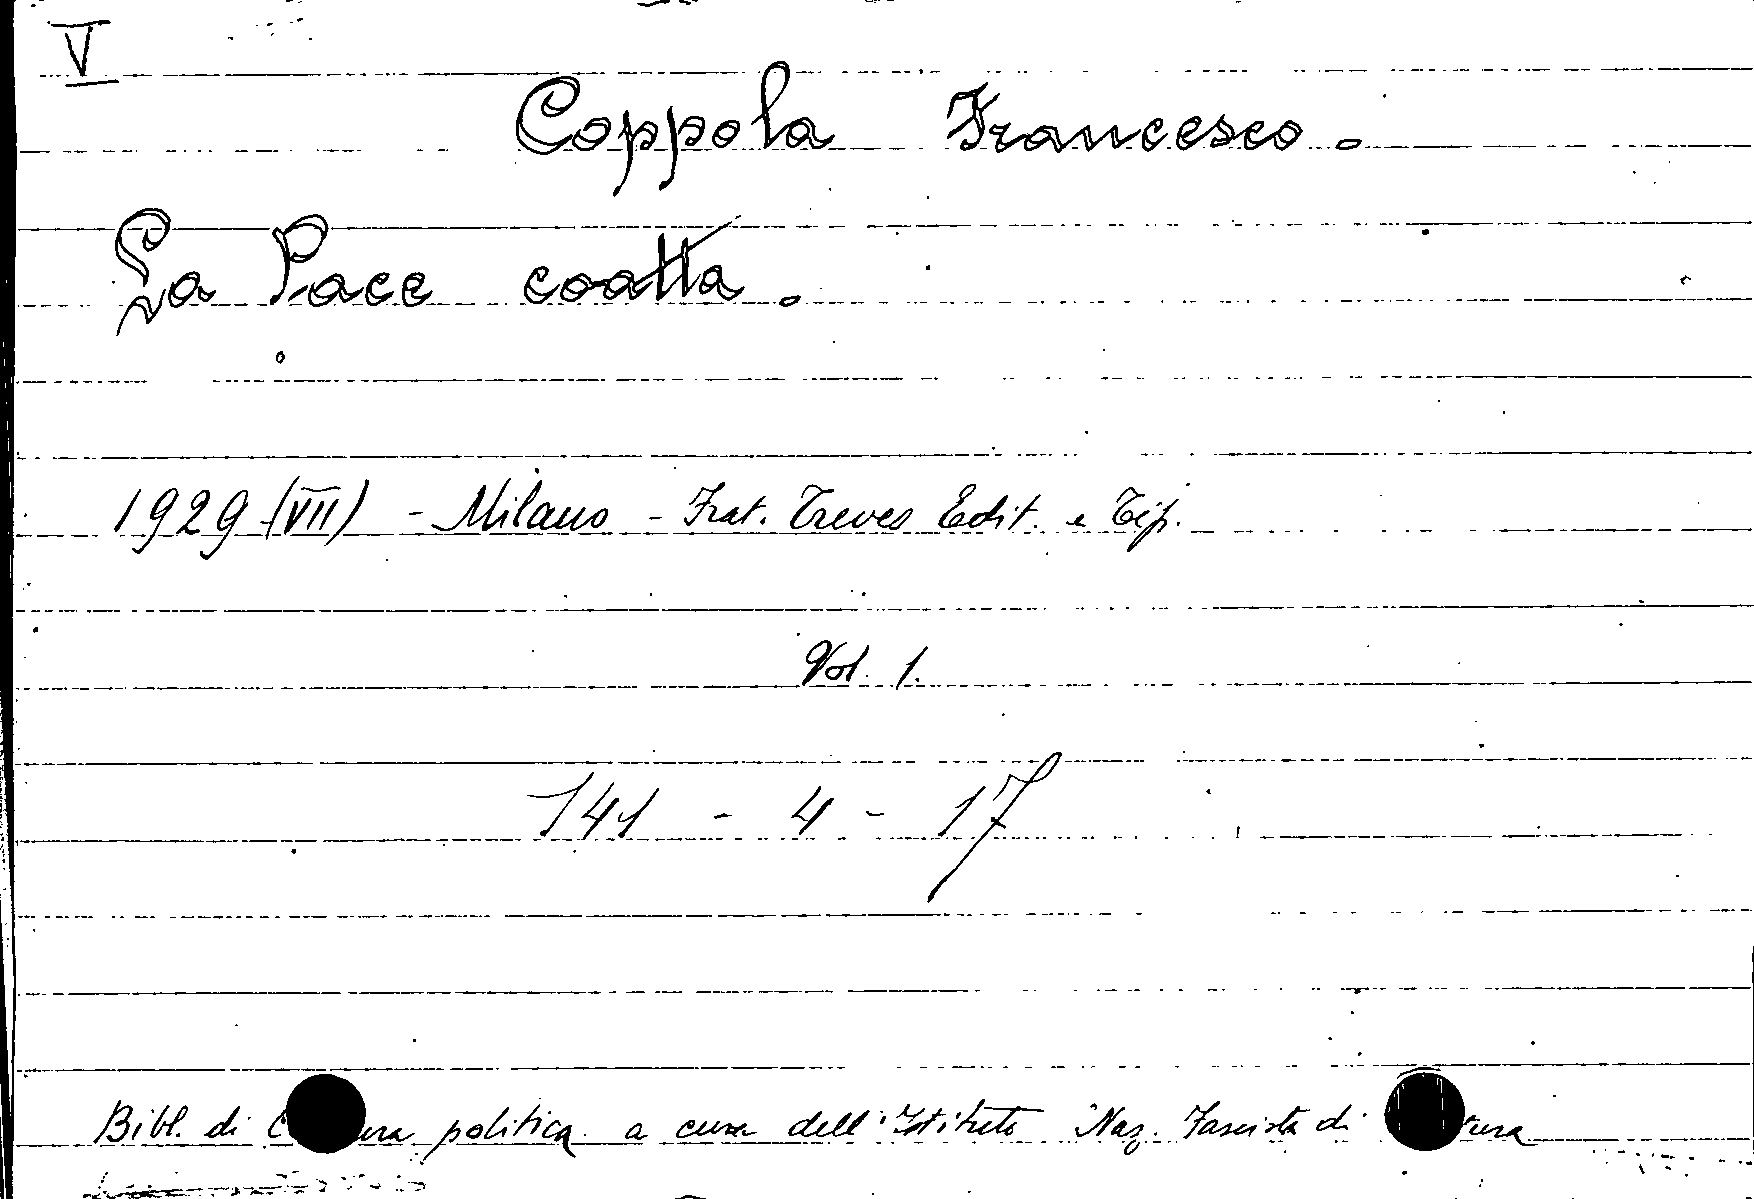 V
Coppola Francesco.
La Pace coatta.
1929 (VII) - Milano - Frat. Treves Edit. e Tip.
Vol. 1.
141 - 4 - 17
Bibl. di politica a cura dell'Istituto Naz. Fascista di